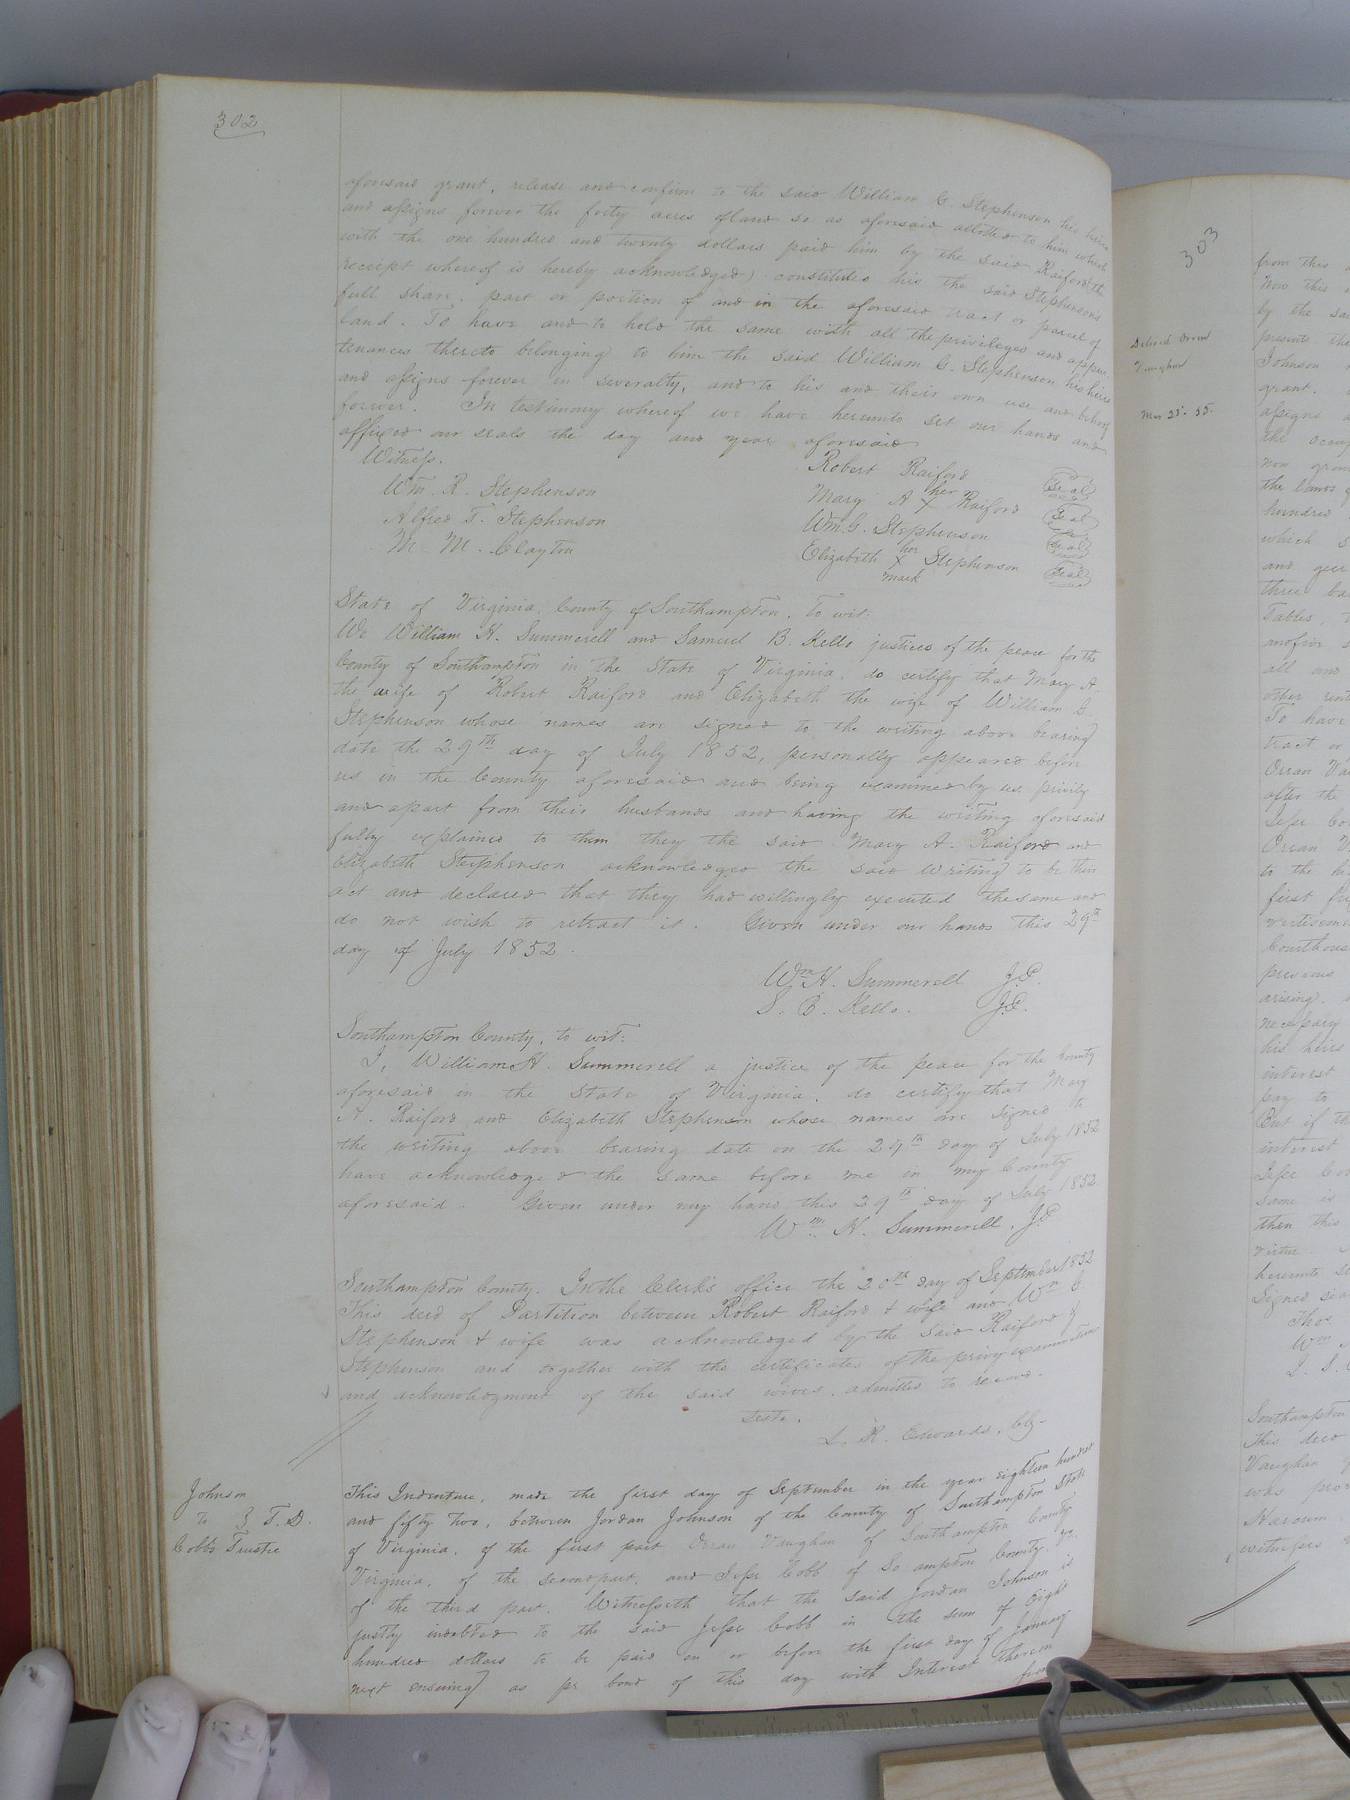 302
aforesaid grant, release and confirm to the said William G. Stephenson his heirs
and assigns forever the forty acres of land so as aforesaid allotted to him which
with the one hundred and twenty dollars paid him by the said Raiford (the
receipt whereof is hereby acknowledged) constitutes his the said Stephensons
full share, part or portion of and in the aforesaid tract or parcel of
land. To have and to hold the same with all the privileges and appur-
tenances thereto belonging to him the said William G. Stephenson his heirs
and assigns forever in severalty, and to his and their own use and behoof
forever. In testimony whereof we have hereunto set our hands and
affixed our seals the day and year aforesaid
Witness.
Robert Raiford Seal
Wm. R. Stephenson
Mary A her X Raiford Seal
Alfred T. Stephenson
Wm. G. Stephenson Seal
M. M. Clayton
Elizabeth her X mark Stephenson Seal
State of Virginia, County of Southampton, to wit:
We William H. Summerell and Samuel B. Kello justices of the peace for the
County of Southampton in the State of Virginia, do certify that Mary A.
the wife of Robert Raiford and Elizabeth the wife of William G.
Stephenson whose names are signed to the writing above bearing
date the 29th day of July 1852, personally appeared before
us in the County aforesaid and being examined by us privily
and apart from their husbands and having the writing aforesaid
fully explained to them they the said Mary A. Raiford and
Elizabeth Stephenson acknowledged the said writing to be their
act and declared that they had willingly executed the same and
do not wish to retract it. Given under our hands this 29th
day of July 1852.
Wm H. Summerell J.P.
S. B. Kello. J.P.
Southampton County, to wit:
I, William H. Summerell a justice of the peace for the County
aforesaid in the State of Virginia, do certify that Mary
A. Raiford and Elizabeth Stephenson whose names are signed to
the writing above bearing date on the 29th day of July 1852
have acknowledged the same before me in my County
aforesaid. Given under my hand this 29th day of July 1852
Wm. H. Summerell, J.P.
Southampton County. In the Clerk's office the 20th day of September 1852
This deed of Partition between Robert Raiford & wife and Wm G.
Stephenson & wife was acknowledged by the said Raiford &
Stephenson and together with the certificates of the privy examination
and acknowledgment of the said wives, admitted to record.
Teste.
L. R. Edwards, Clk.
Johnson
To } T. D.
Cobbs Trustee
This Indenture, made the first day of September in the year eighteen hundred
and fifty two, between Jordan Johnson of the County of Southampton State
of Virginia, of the first part Orran Vaughan of Southampton County
Virginia, of the second part, and Jesse Cobb of So ampton County, Va.
of the third part. Witnesseth that the said Jordan Johnson is
justly indebted to the said Jesse Cobb in the sum of Eight
hundred dollars to be paid on or before the first day of January
next ensuing as pr bond of this day with Interest thereon
from
303
Vaughan
from this
Now this
by the sa
presents the
Johnson
grant.
assigns
the occup
now grow
the lands
hundred
which
and geer
three
Tables,
all and
other
To have
tract or
Orran Va
after the
Jesse Co
Orran V
to the
first
Courthous
previous
arising,
necessary
his heirs
interest
pay to
But if th
interest
Jesse Co
same is
then this
virtue
hereunto se
Signed sea
Thos
Wm
Southampton
This deed
Vaughan
was prov
witnesses